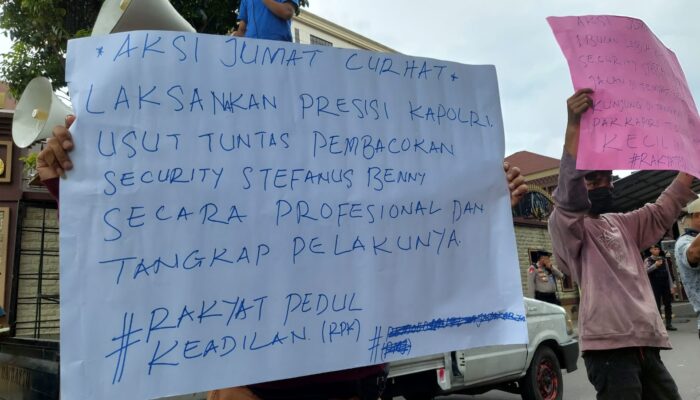 * AKSI JUMAT CURHAT *
LAKSANAKAN PRESISI KAPOLRI.
USUT TUNTAS PEMBACOKAN
SECURITY STEFANUS BENNY
SECARA PROFESIONAL DAN
TANGKAP PELAKUNYA.
#RAKYAT PEDULI
KEADILAN (RPK) #
SECURITY
KUNJUNG DI TANGKAP
PAK KAPOLRI
KECIL